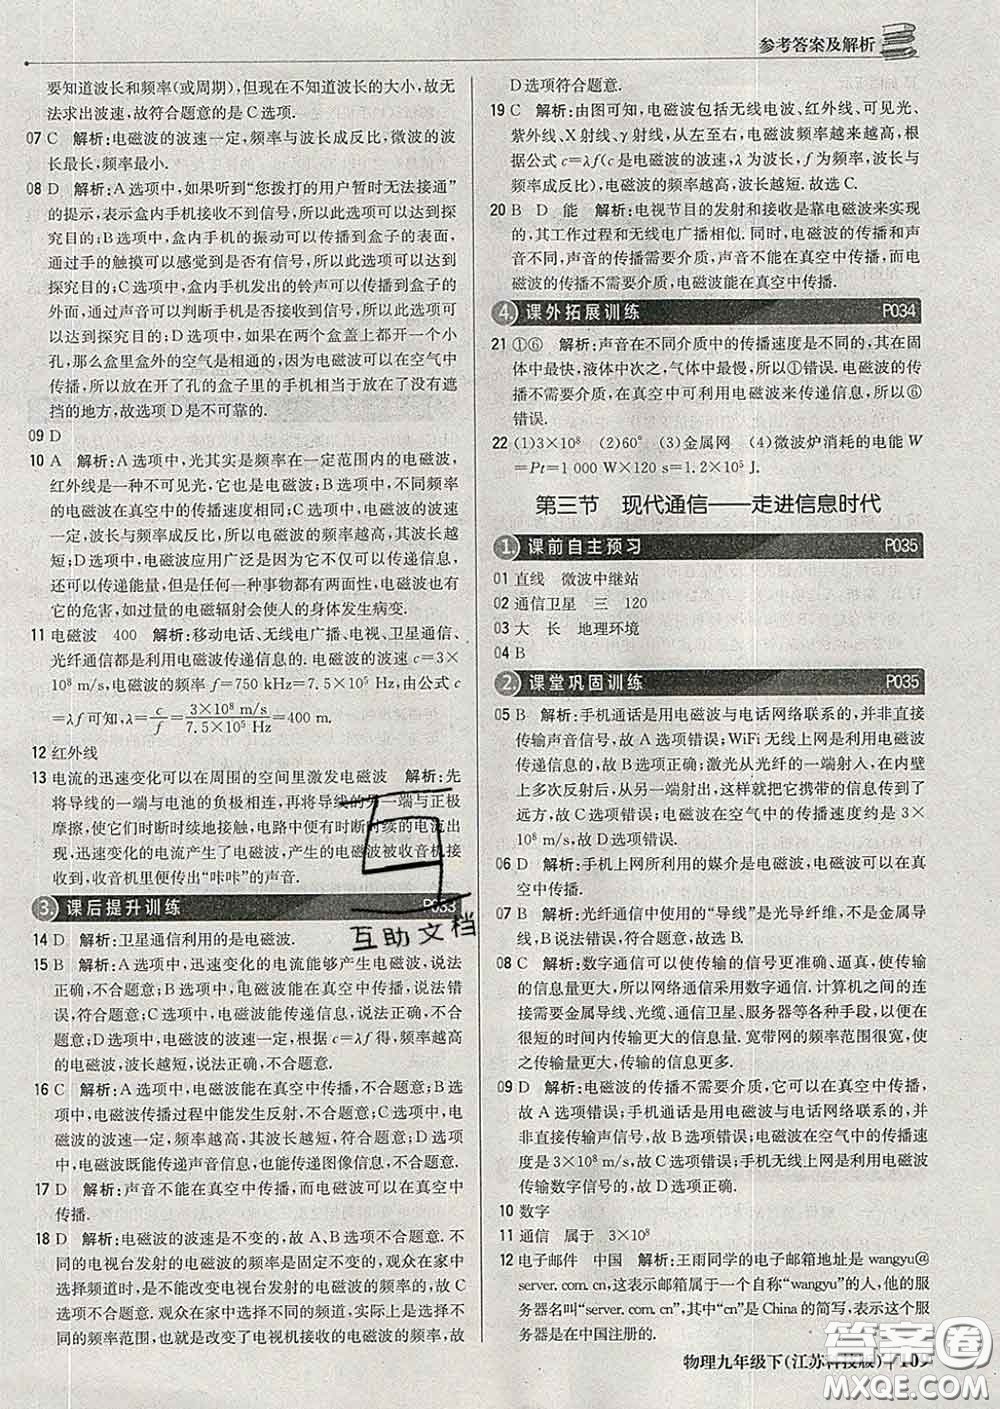 参考答案及解析
要知道波长和频率(或周期),但现在不知道波长的大小,故无
法求出波速,故符合题意的是C选项.
07 C 解析:电磁波的波速一定,频率与波长成反比,微波的波
长最长,频率最小.
08 D 解析:A选项中,如果听到“您拨打的用户暂时无法接通”
的提示,表示盒内手机接收不到信号,所以此选项可以达到探
究目的;B选项中,盒内手机的振动可以传播到盒子的表面,
通过手的触摸可以感觉到是否有信号,所以此选项可以达到
探究目的;C选项中,盒内手机发出的铃声可以传播到盒子的
外面,通过声音可以判断手机是否接收到信号,所以此选项可
以达到探究目的;D选项中,如果在两个盒盖上都开一个大
孔,那么盒里盒外的空气是相通的,因为电磁波可以在空气中
传播,所以放在开了孔的盒子里的手机相当于放在了没有遮
挡的地方,故选项D是不可靠的.
09 D
10 A 解析:A选项中,光其实是频率在一定范围内的电磁波,
红外线是一种不可见光,它也是电磁波;B选项中,不同频率
的电磁波在真空中的传播速度相同;C选项中,波长越长频率
越小,所以电磁波的波长越长其频率越低,频率越高其波长越
短;D选项中,电磁波应用广泛是因为它不仅可以传递信息,
还可以传递能量,但是任何一种事物都有两面性,电磁波也有
它的危害,如过量的电磁辐射会使人的身体发生病变.
11 电磁波 400 解析:移动电话、无线电广播、电视、卫星通信、
光纤通信都是利用电磁波传递信息的.电磁波的波速c=3×
10⁸ m/s,电磁波的频率f=750 kHz=7.5×10⁵ Hz,由公式c
=λf可知,λ=c/f=3×10⁸ m/s/7.5×10⁵ Hz=400 m.
12 红外线
13 电流的迅速变化可以在周围的空间里激发电磁波 解析:先
将导线的一端与电池的负极相连,再将导线的另一端与正极
摩擦,使它们时断时续地接触,电路中便有时断时续的电流出
现,迅速变化的电流产生了电磁波,产生的电磁波被收音机接
收到,收音机里便传出“咔咔”的声音.
3. 课后提升训练 P033
14 D 解析:卫星通信利用的是电磁波.
15 B 解析:A选项中,迅速变化的电流能够产生电磁波,说法
正确,不合题意;B选项中,电磁波能在真空中传播,说法错
误,符合题意;C选项中,电磁波能传递信息,说法正确,不合
题意;D选项中,电磁波的波速一定,根据c=λf得,频率越高
的电磁波,波长越短,说法正确,不合题意.
16 C 解析:A选项中,电磁波能在真空中传播,不合题意;B选
项中,电磁波传播过程中能发生反射,不合题意;C选项中,电
磁波的波速一定,频率越高,其波长越短,符合题意;D选项
中,电磁波既能传递声音信息,也能传递图像信息,不合题意.
17 D 解析:声音不能在真空中传播,而电磁波可以在真空中
传播.
18 D 解析:电磁波的波速是不变的,故A、B选项不合题意.不
同的电视台发射的电磁波的频率是固定不变的,观众在家中
选择频道时,是不能改变电视台发射的电磁波的频率的,故C
选项不合题意.观众在家中选择不同的频道,实际上是选择不
同的频率范围,也就是改变了电视机接收的电磁波的频率,故
D选项符合题意.
19 C 解析:由图可知,电磁波包括无线电波、红外线、可见光、
紫外线、X射线、γ射线,从左至右,电磁波频率越来越高,根
据公式c=λf(c是电磁波的波速,λ为波长,f为频率,波长与
频率成反比),电磁波的频率越高,波长越短.故选C.
20 B D 能 解析:电视节目的发射和接收是靠电磁波来实现
的,其工作过程和无线电广播相似.同时,电磁波的传播与声
音不同,声音的传播需要介质,声音不能在真空中传播,电磁
波的传播不需要介质,电磁波能在真空中传播.
4. 课外拓展训练 P034
21 ①⑥ 解析:声音在不同介质中的传播速度是不同的,其在固
体中最快,液体中次之,气体中最慢,所以①错误.电磁波的传
播不需要介质,在真空中可利用电磁波来传递信息,所以⑥
错误.
22 (1)3×10⁸ (2)60° (3)金属网 (4)微波炉消耗的电能W
=Pt=1 000 W×120 s=1.2×10⁵ J.
第三节 现代通信——走进信息时代
1. 课前自主预习 P035
01 直线 微波中继站
02 通信卫星 三 120
03 大 长 地理环境
04 B
2. 课堂巩固训练 P035
05 B 解析:手机通话是用电磁波与电话网络联系的,并非直接
传输声音信号,故A选项错误;WiFi无线上网是利用电磁波
传递信息的,故B选项正确;激光从光纤的一端射入,在内壁
上多次反射后,从另一端射出,这样就把它携带的信息传到了
远方,故C选项错误;电磁波在空气中的传播速度约是3×
10⁸ m/s,故D选项错误.
06 D 解析:手机上网所利用的媒介是电磁波,电磁波可以在真
空中传播.
07 B 解析:光纤通信中使用的“导线”是光导纤维,不是金属导
线,B说法错误,符合题意,故选B.
08 C 解析:数字通信可以使传输的信号更准确、逼真,使传输
的信息量更大,所以网络通信采用数字通信.计算机之间的连
接需要金属导线、光缆、通信卫星、服务器等各种手段,以便在
很短的时间内传输更大的信息量.宽带网的频率范围很宽,使
之传输量更大,传输的信息更多.
09 D 解析:电磁波的传播不需要介质,它可以在真空中传播,
故A选项错误;手机通话是用电磁波与电话网络联系的,并
非直接传输声音信号,故B选项错误;电磁波在空气中的传播
速度是3×10⁸ m/s,故C选项错误;手机无线上网是利用电磁
波传输数字信号的,故D选项正确.
10 数字
11 通信 属于 3×10⁸
12 电子邮件 中国 解析:王雨同学的电子邮箱地址是wangyu@
server.com.cn,这表示邮箱属于一个自称“wangyu”的人,他的服
务器名叫“server.com.cn”,其中“cn”是China的简写,表示这个服
务器是在中国注册的.
互助文档
物理九年级下(江苏科技版) 109
答案圈
MXQE.COM